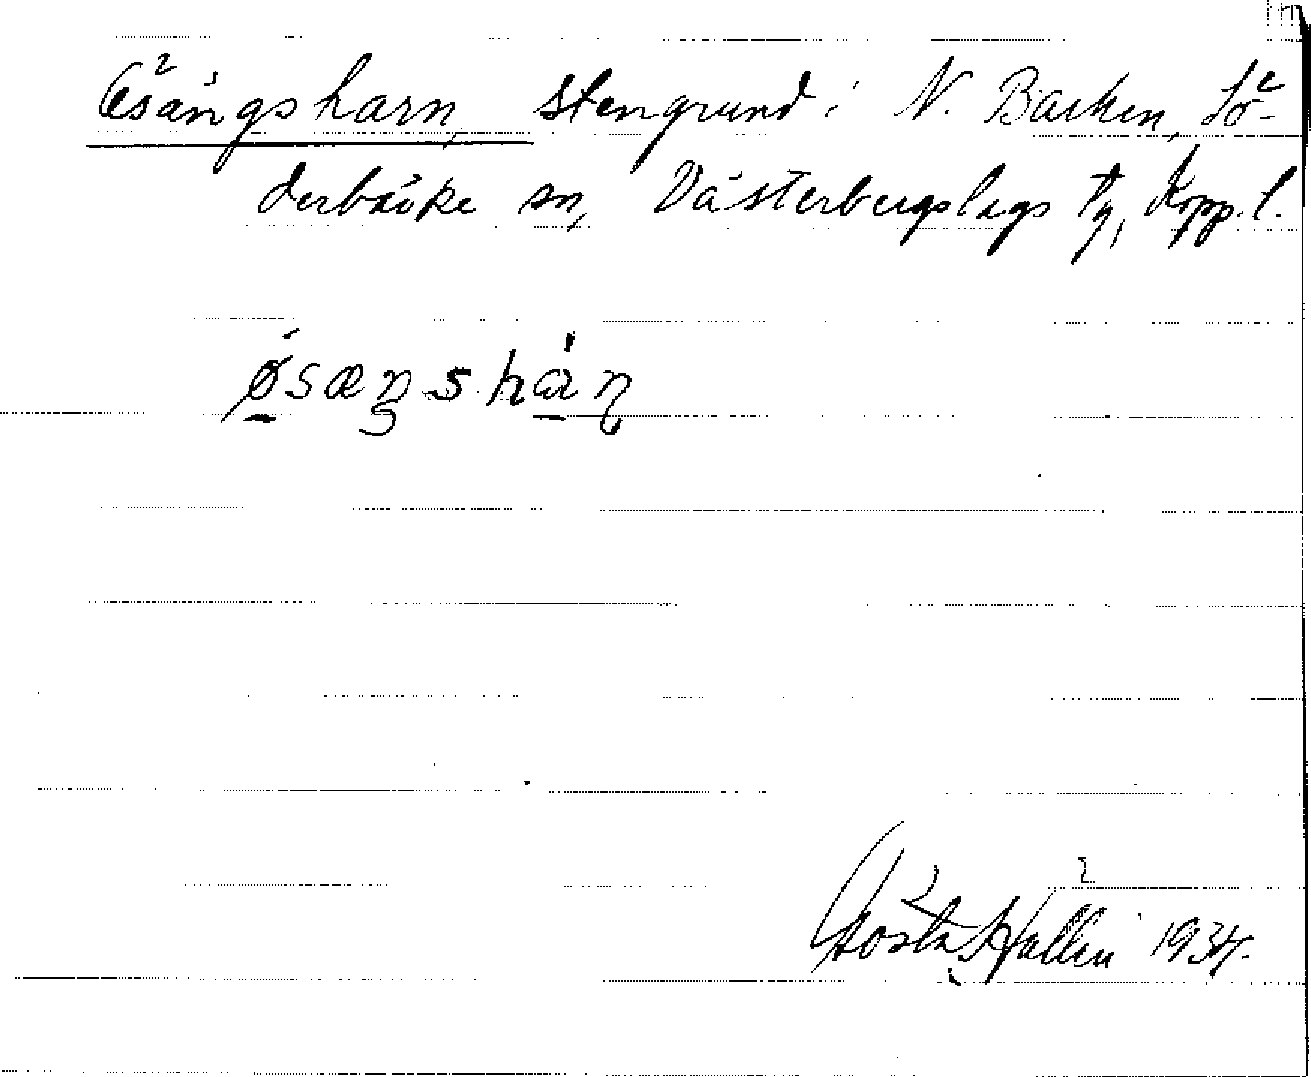 Ösängsharn, stengrund i N. Barken, Sö-
derbärke sn, Västerbergslags tg, Kopp. l.
ǿsæŋshàṇ
Gösta Hallén 1934.